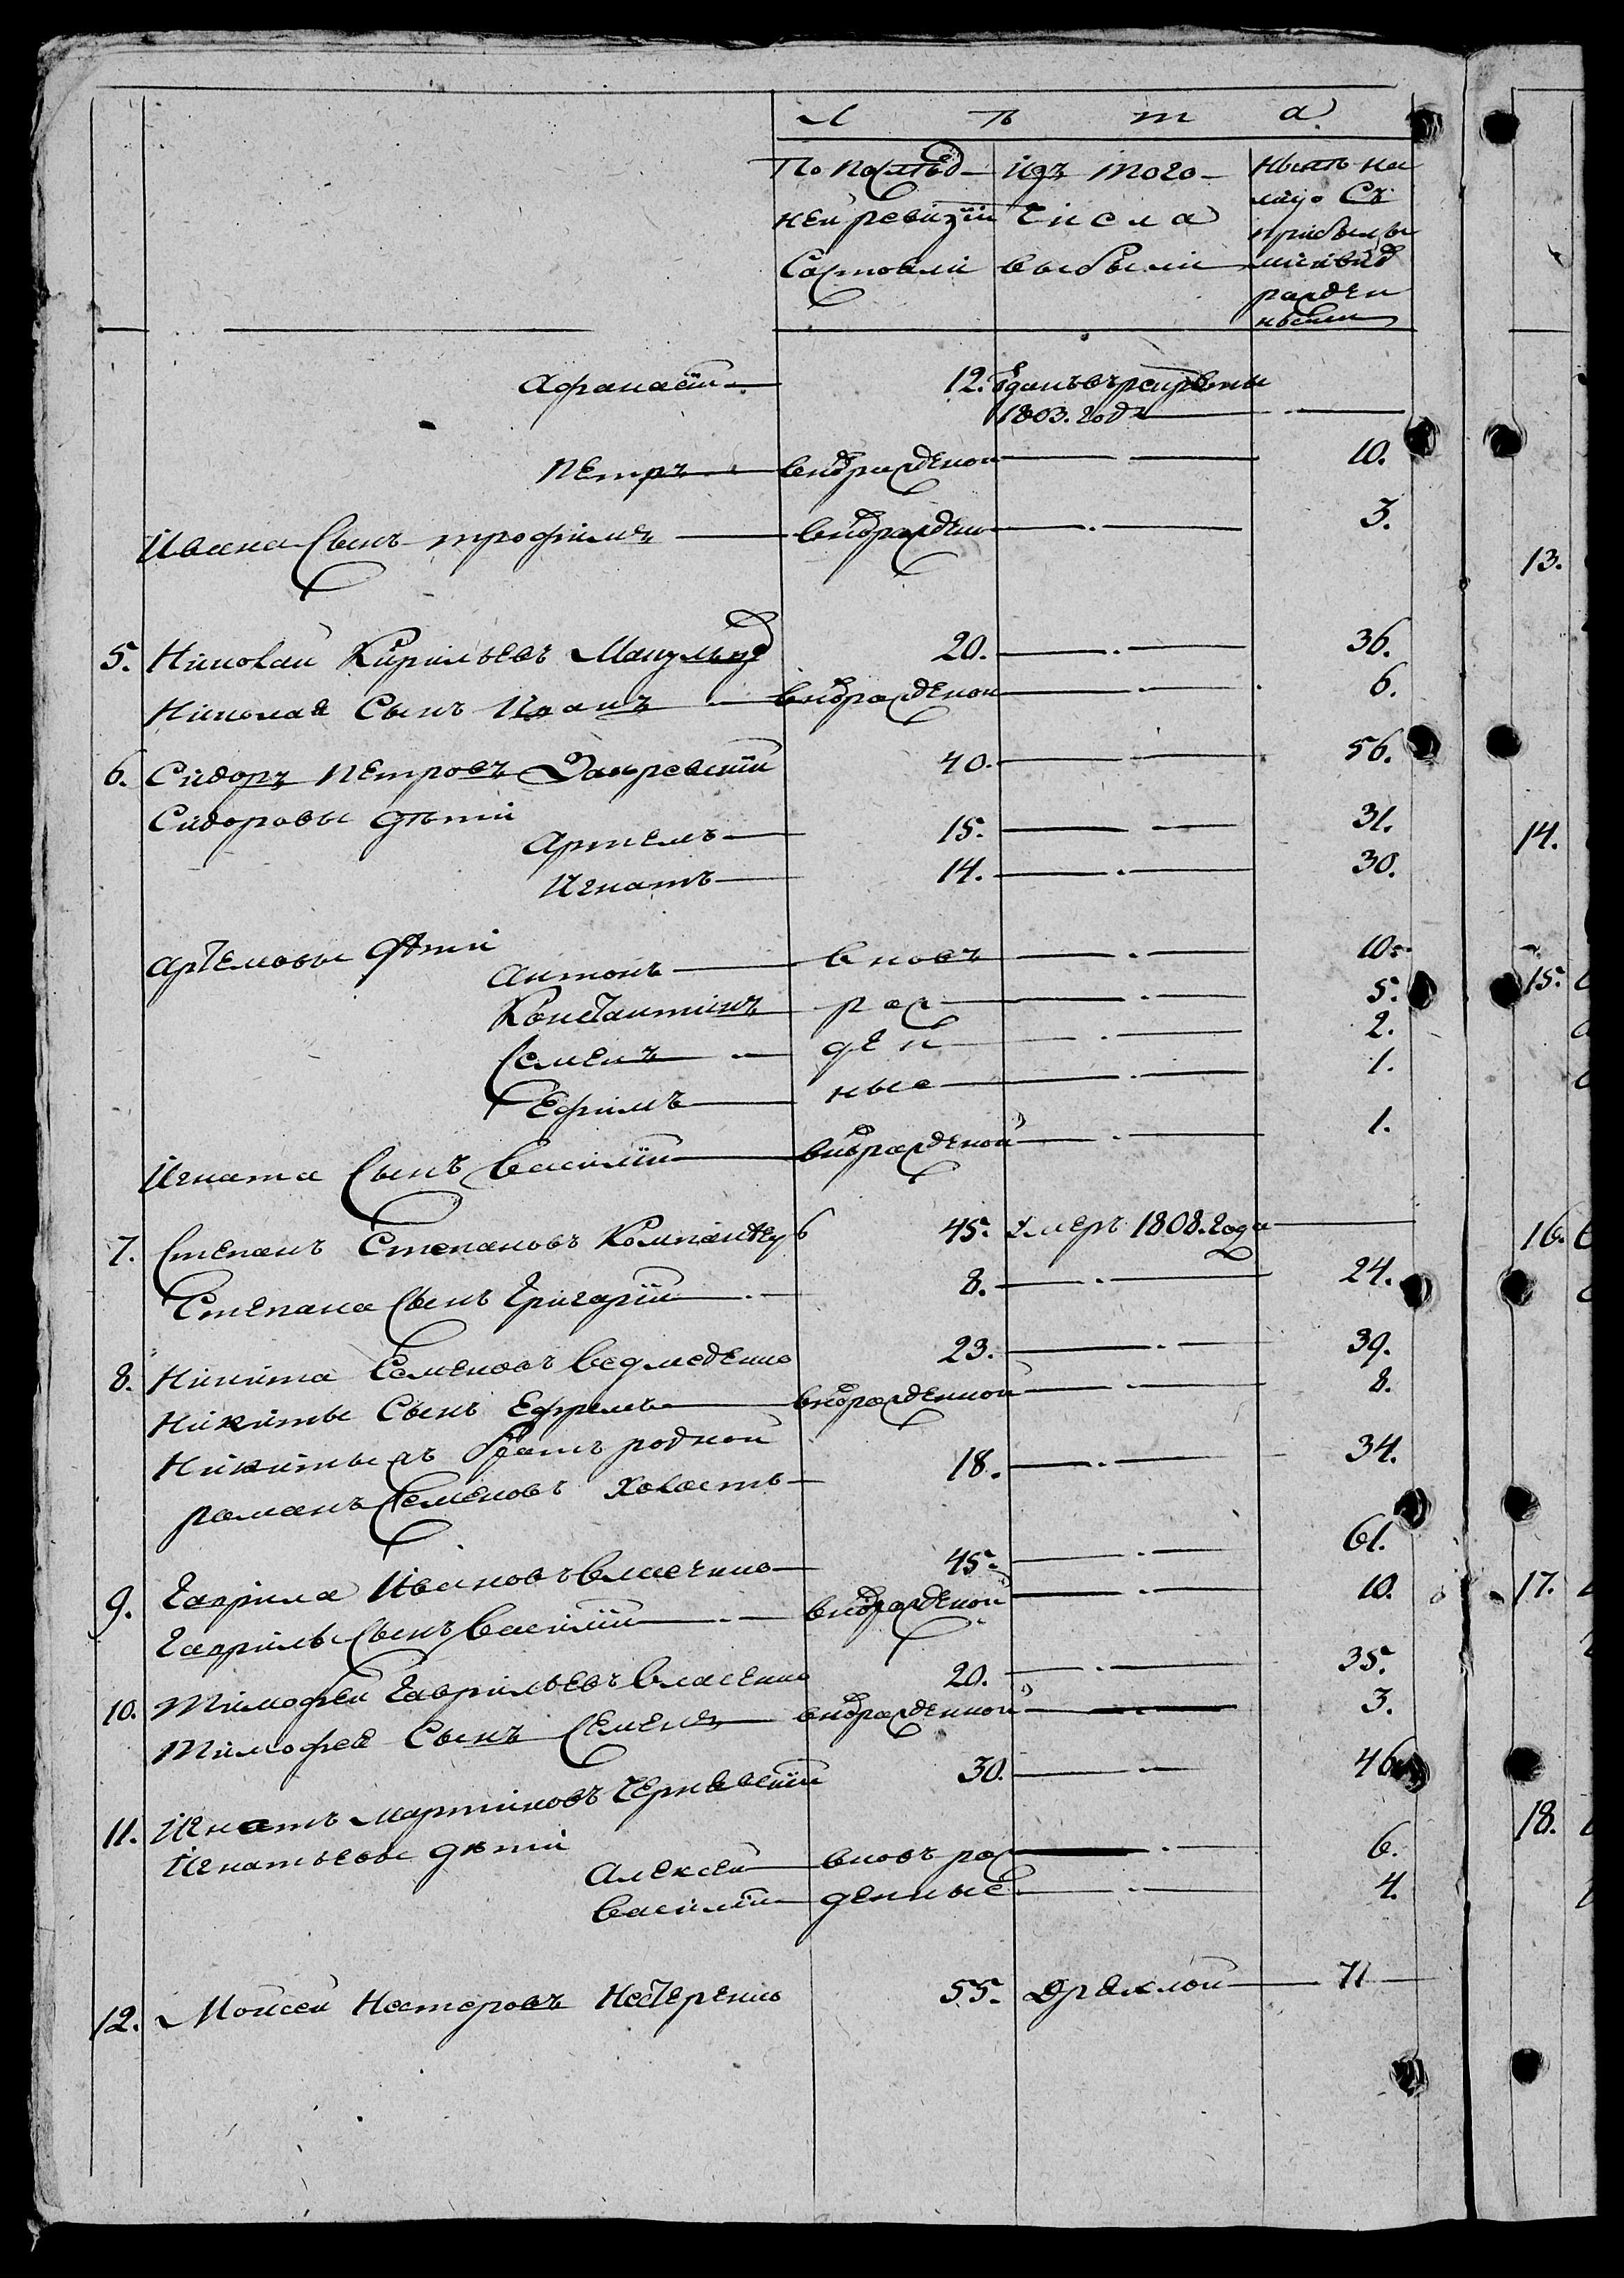 Л ѣ т а
По послѣд
ней ревизіи
Состояли
Изъ того
числа
выбыли
Нынѣ на
лицо Съ
прибылы
ми и внѡв
рожден
ными
Афанасій 12. Отданъ въ рекруты
1803. года
Петръ вновь рожденой 10.
Ивана Сынъ трофимъ вновь рожден 3.
5. Николай Кирильевъ 20. 36.
Николая Сынъ Иванъ вновь рожденой 6.
6. Сидоръ Петровъ Закревскій 40. 56.
Сидоровы дѣти
Артемъ 15. 31.
Игнатъ 14. 30.
артемовы дѣти
антонъ вновъ 10.
Константинъ рож 5.
Семенъ ден 2.
Ефимъ ные 1.
Игната Сынъ Василій вновь рожденой 1.
7. Степанъ Степановъ 45. Умеръ 1808. года
Степана Сынъ Григорій 8. 24.
8. Никита Семеновъ Ведмеденко 23. 39.
Никиты Сынъ Ефремъ вновь рожденной 8.
Никиты братъ родной
романъ Семеновъ Холостъ 18. 34.
9. Гаврила Ивановъ Власенко 45. 61.
Гаврилы Сынъ Василій вновь рожденой 10.
10. Тимофей Гаврильевъ Власенко 20. 35.
Тимофея Сынъ Семенъ вновь рожденной 3.
11. Игнатъ Мартиновъ Чернявскій 30. 46
Игнатьевы дѣти
Алексей вновъ рож 6.
Василій денные 4.
12. Моисей Нестеровъ Нестеренко 55. Дряхлой 71
13.
14.
15.
16.
17.
18.